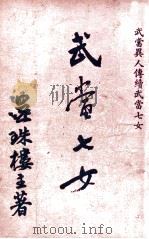 武當異人傳續武當七女
武當七女
還珠樓主著